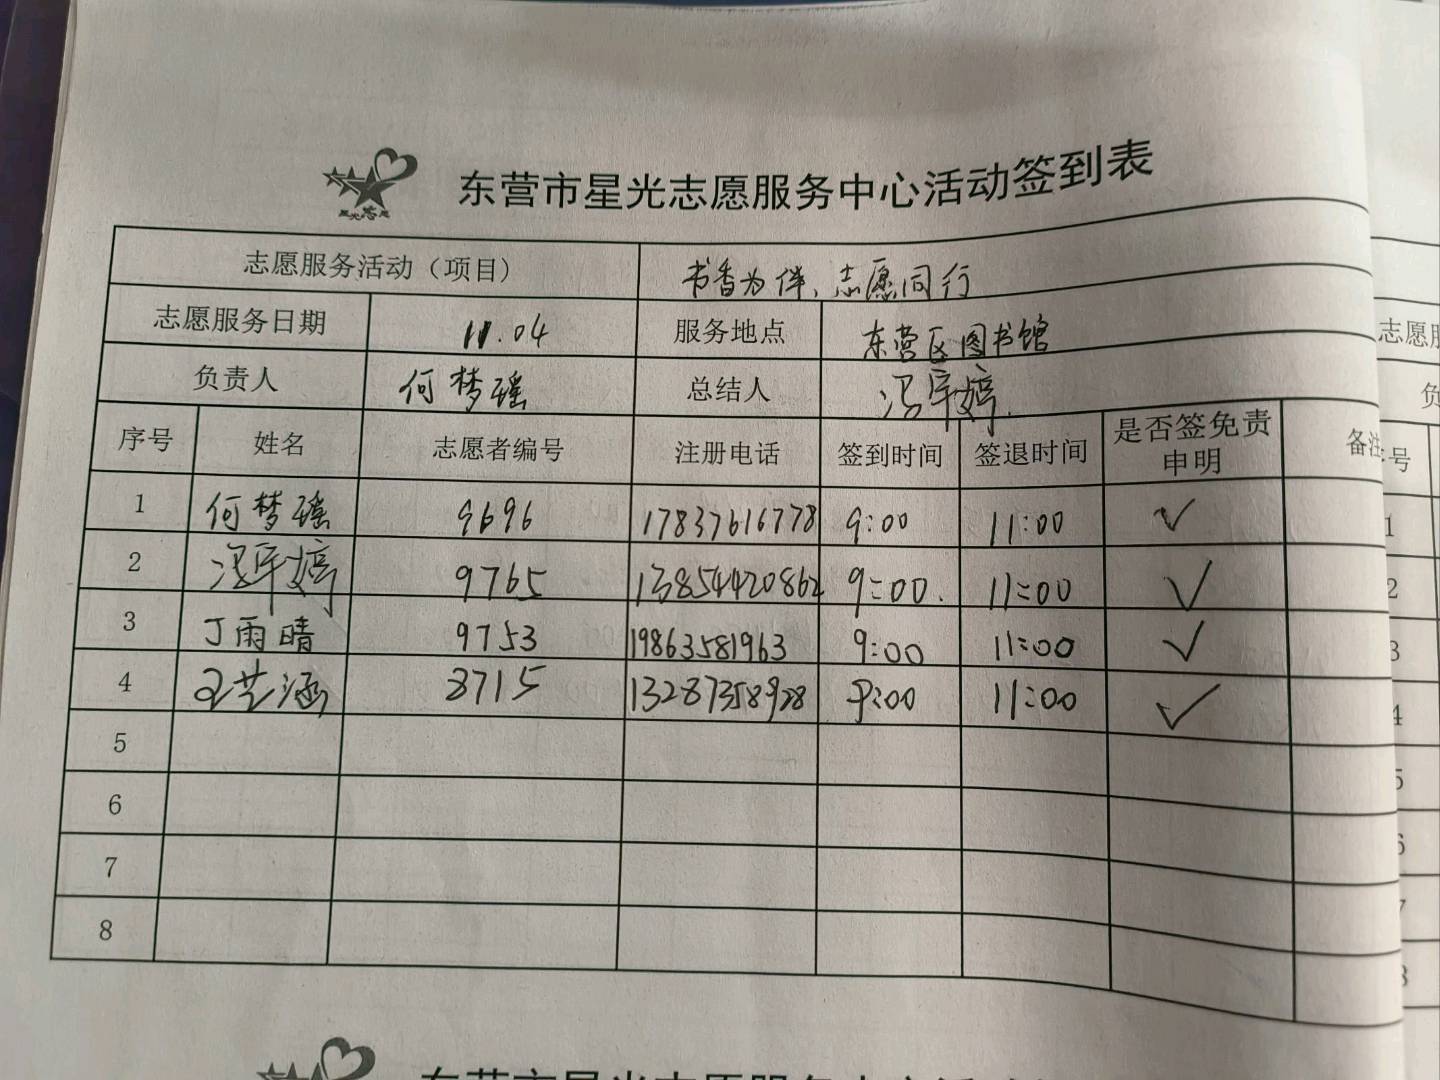 星光志愿
东营市星光志愿服务中心活动签到表
志愿服务活动（项目） 书香为伴，志愿同行
志愿服务日期 11.04 服务地点 东营区图书馆
负责人 何梦瑶 总结人 冯宇婷
序号 姓名 志愿者编号 注册电话 签到时间 签退时间 是否签免责申明 备注
1 何梦瑶 9696 17837616778 9:00 11:00 ✓
2 冯宇婷 9765 13854420862 9:00. 11:00 ✓
3 丁雨晴 9753 19863581963 9:00 11:00 ✓
4 王艺涵 8715 13287358928 9:00 11:00 ✓
5
6
7
8
志愿服
负
号
1
2
3
4
5
6
7
8
东营市星光志愿服务中心活动